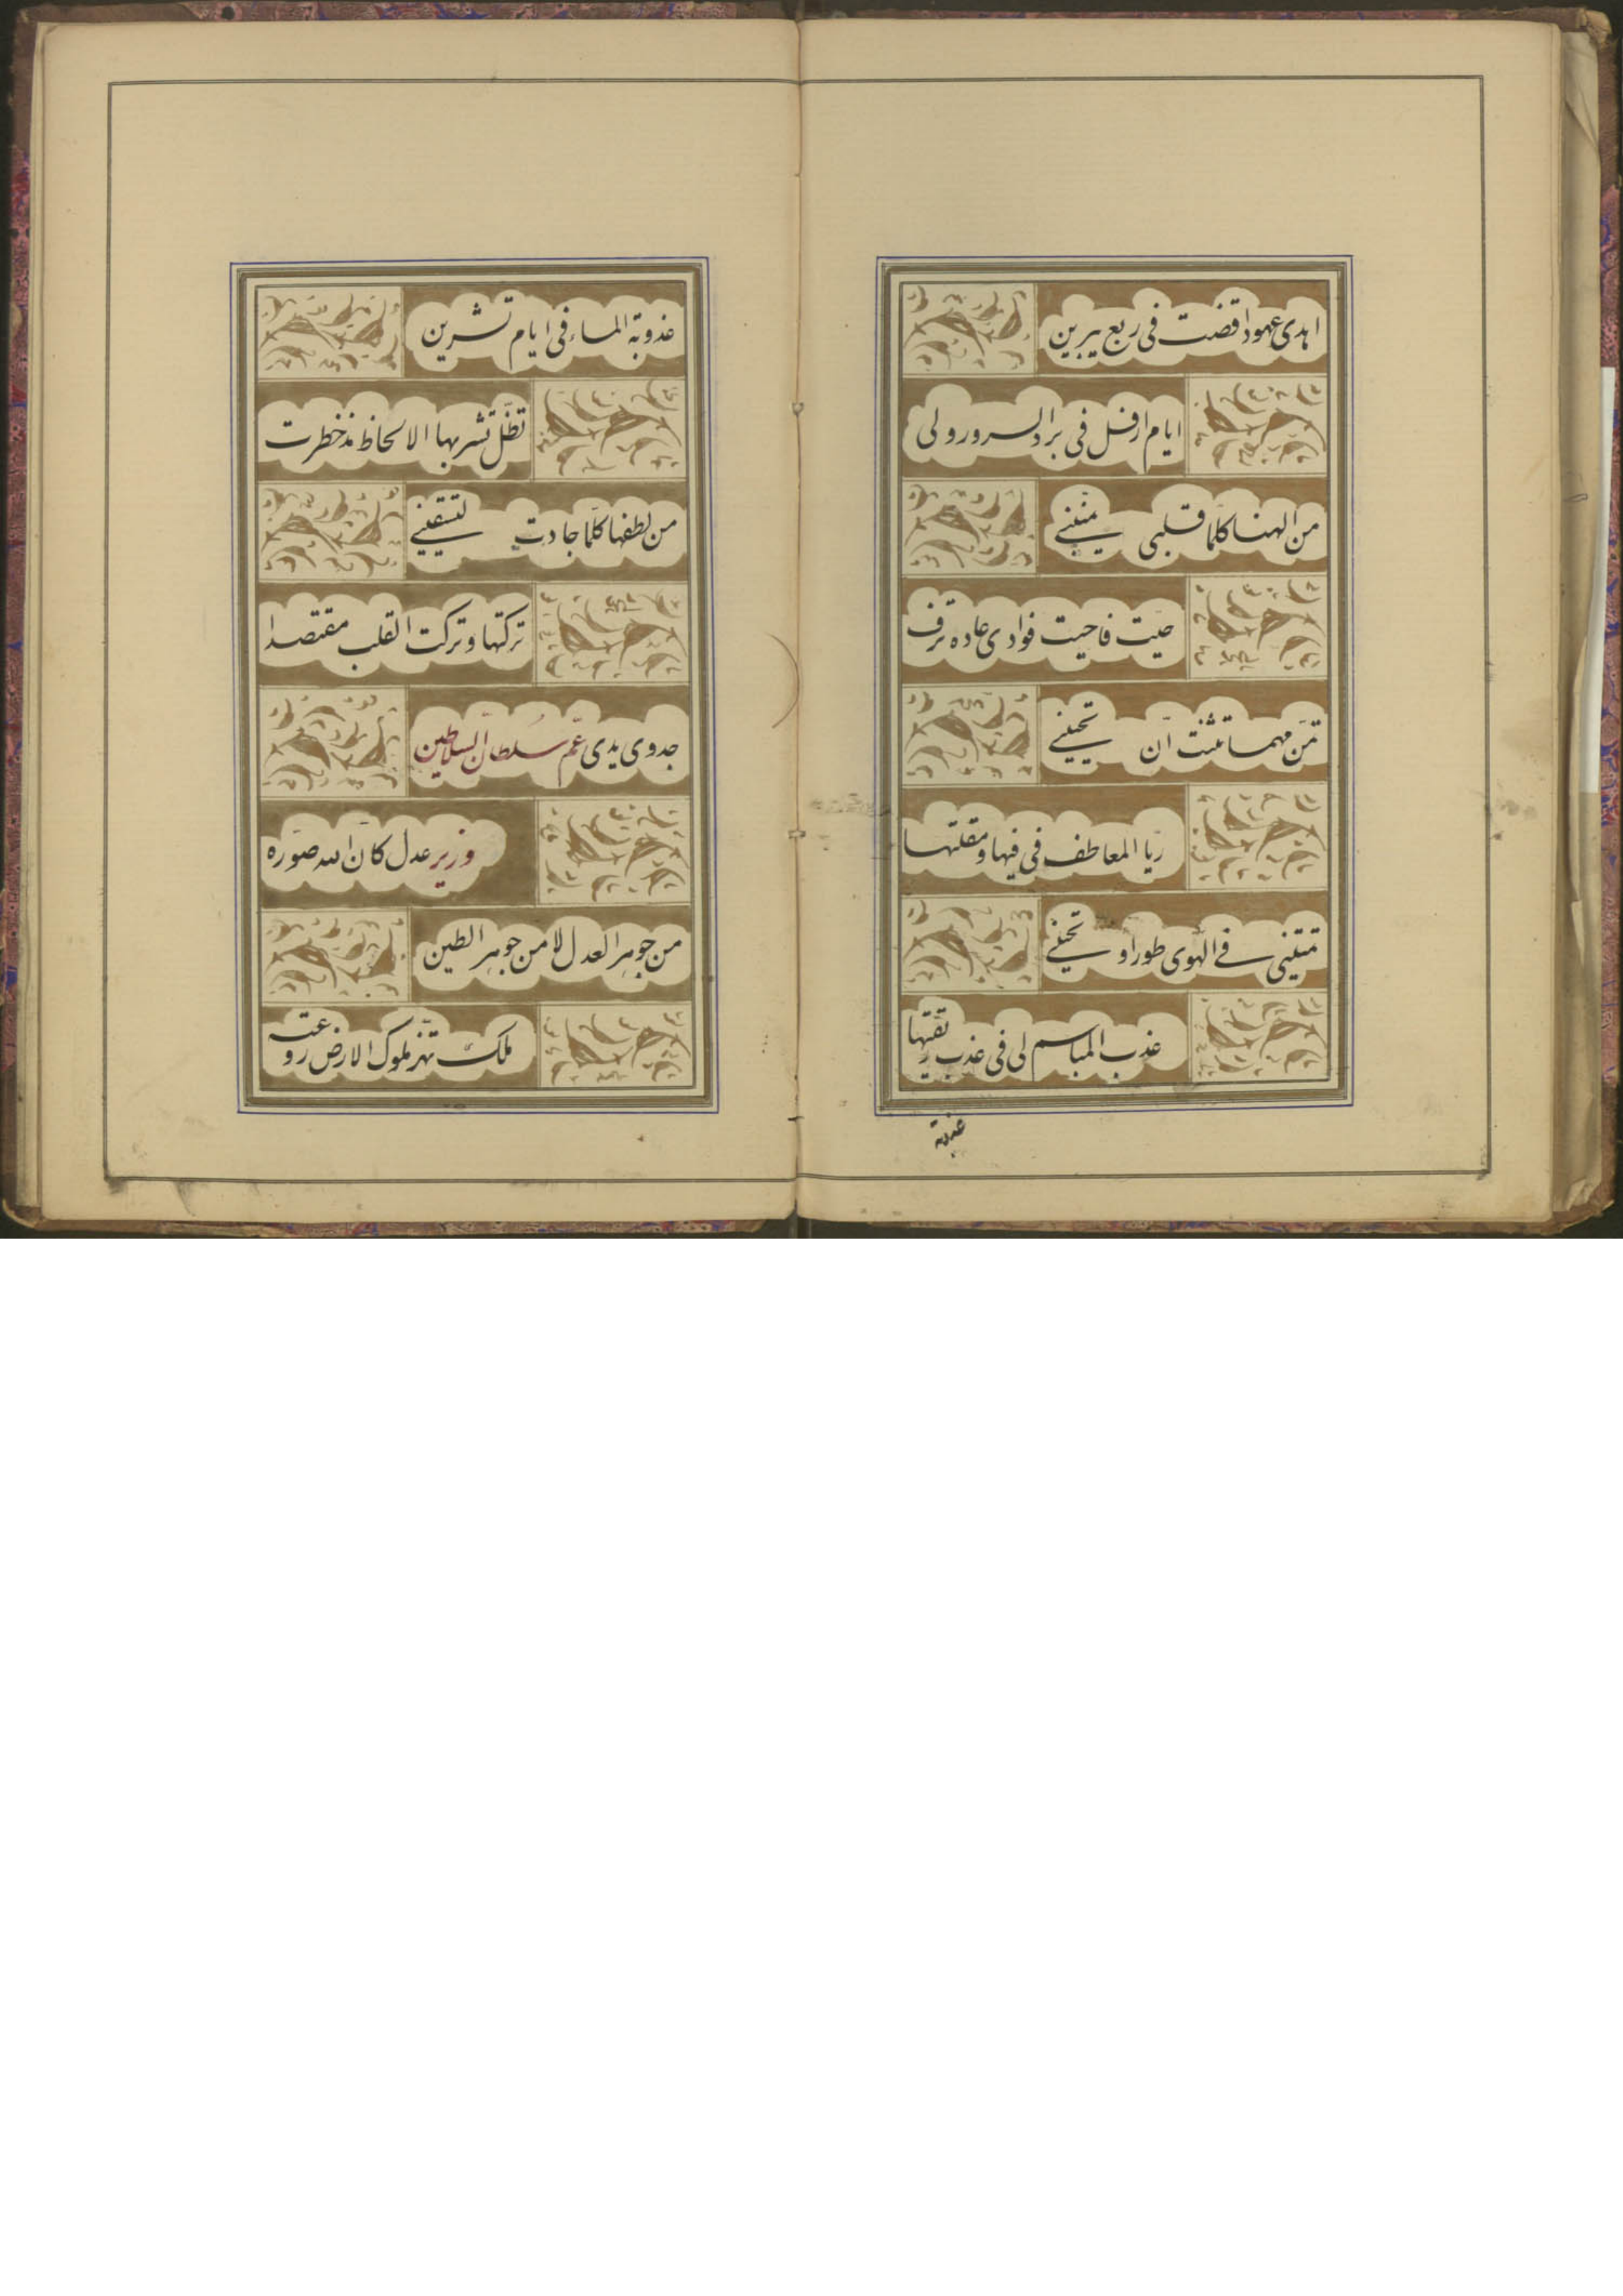 اهدی عهودا قضت فی ربع یبرین
ایام ارفل فی برد السرور ولی
من الهنا کلما قلبی یمنینی
حیت فاحیت فوادی غاده ترف
تمن مهما تثنت ان تحیینی
ریا المعاطف فی فیها ومقلتها
تمیتنی فی الهوی طورا وتحیینی
عذب المباسم لی فی عذب ریقتها
عذوبة
عذوبة الماء فی ایام تشرین
تظل تشربها الالحاظ مذ خطرت
من لطفها کلما جادت لتسقینی
ترکتها وترکت القلب مقتصدا
جدوی یدی عم سلطان السلاطین
وزیر عدل کان الله صوره
من جوهر العدل لا من جوهر الطین
ملک تهز ملوک الارض روعته